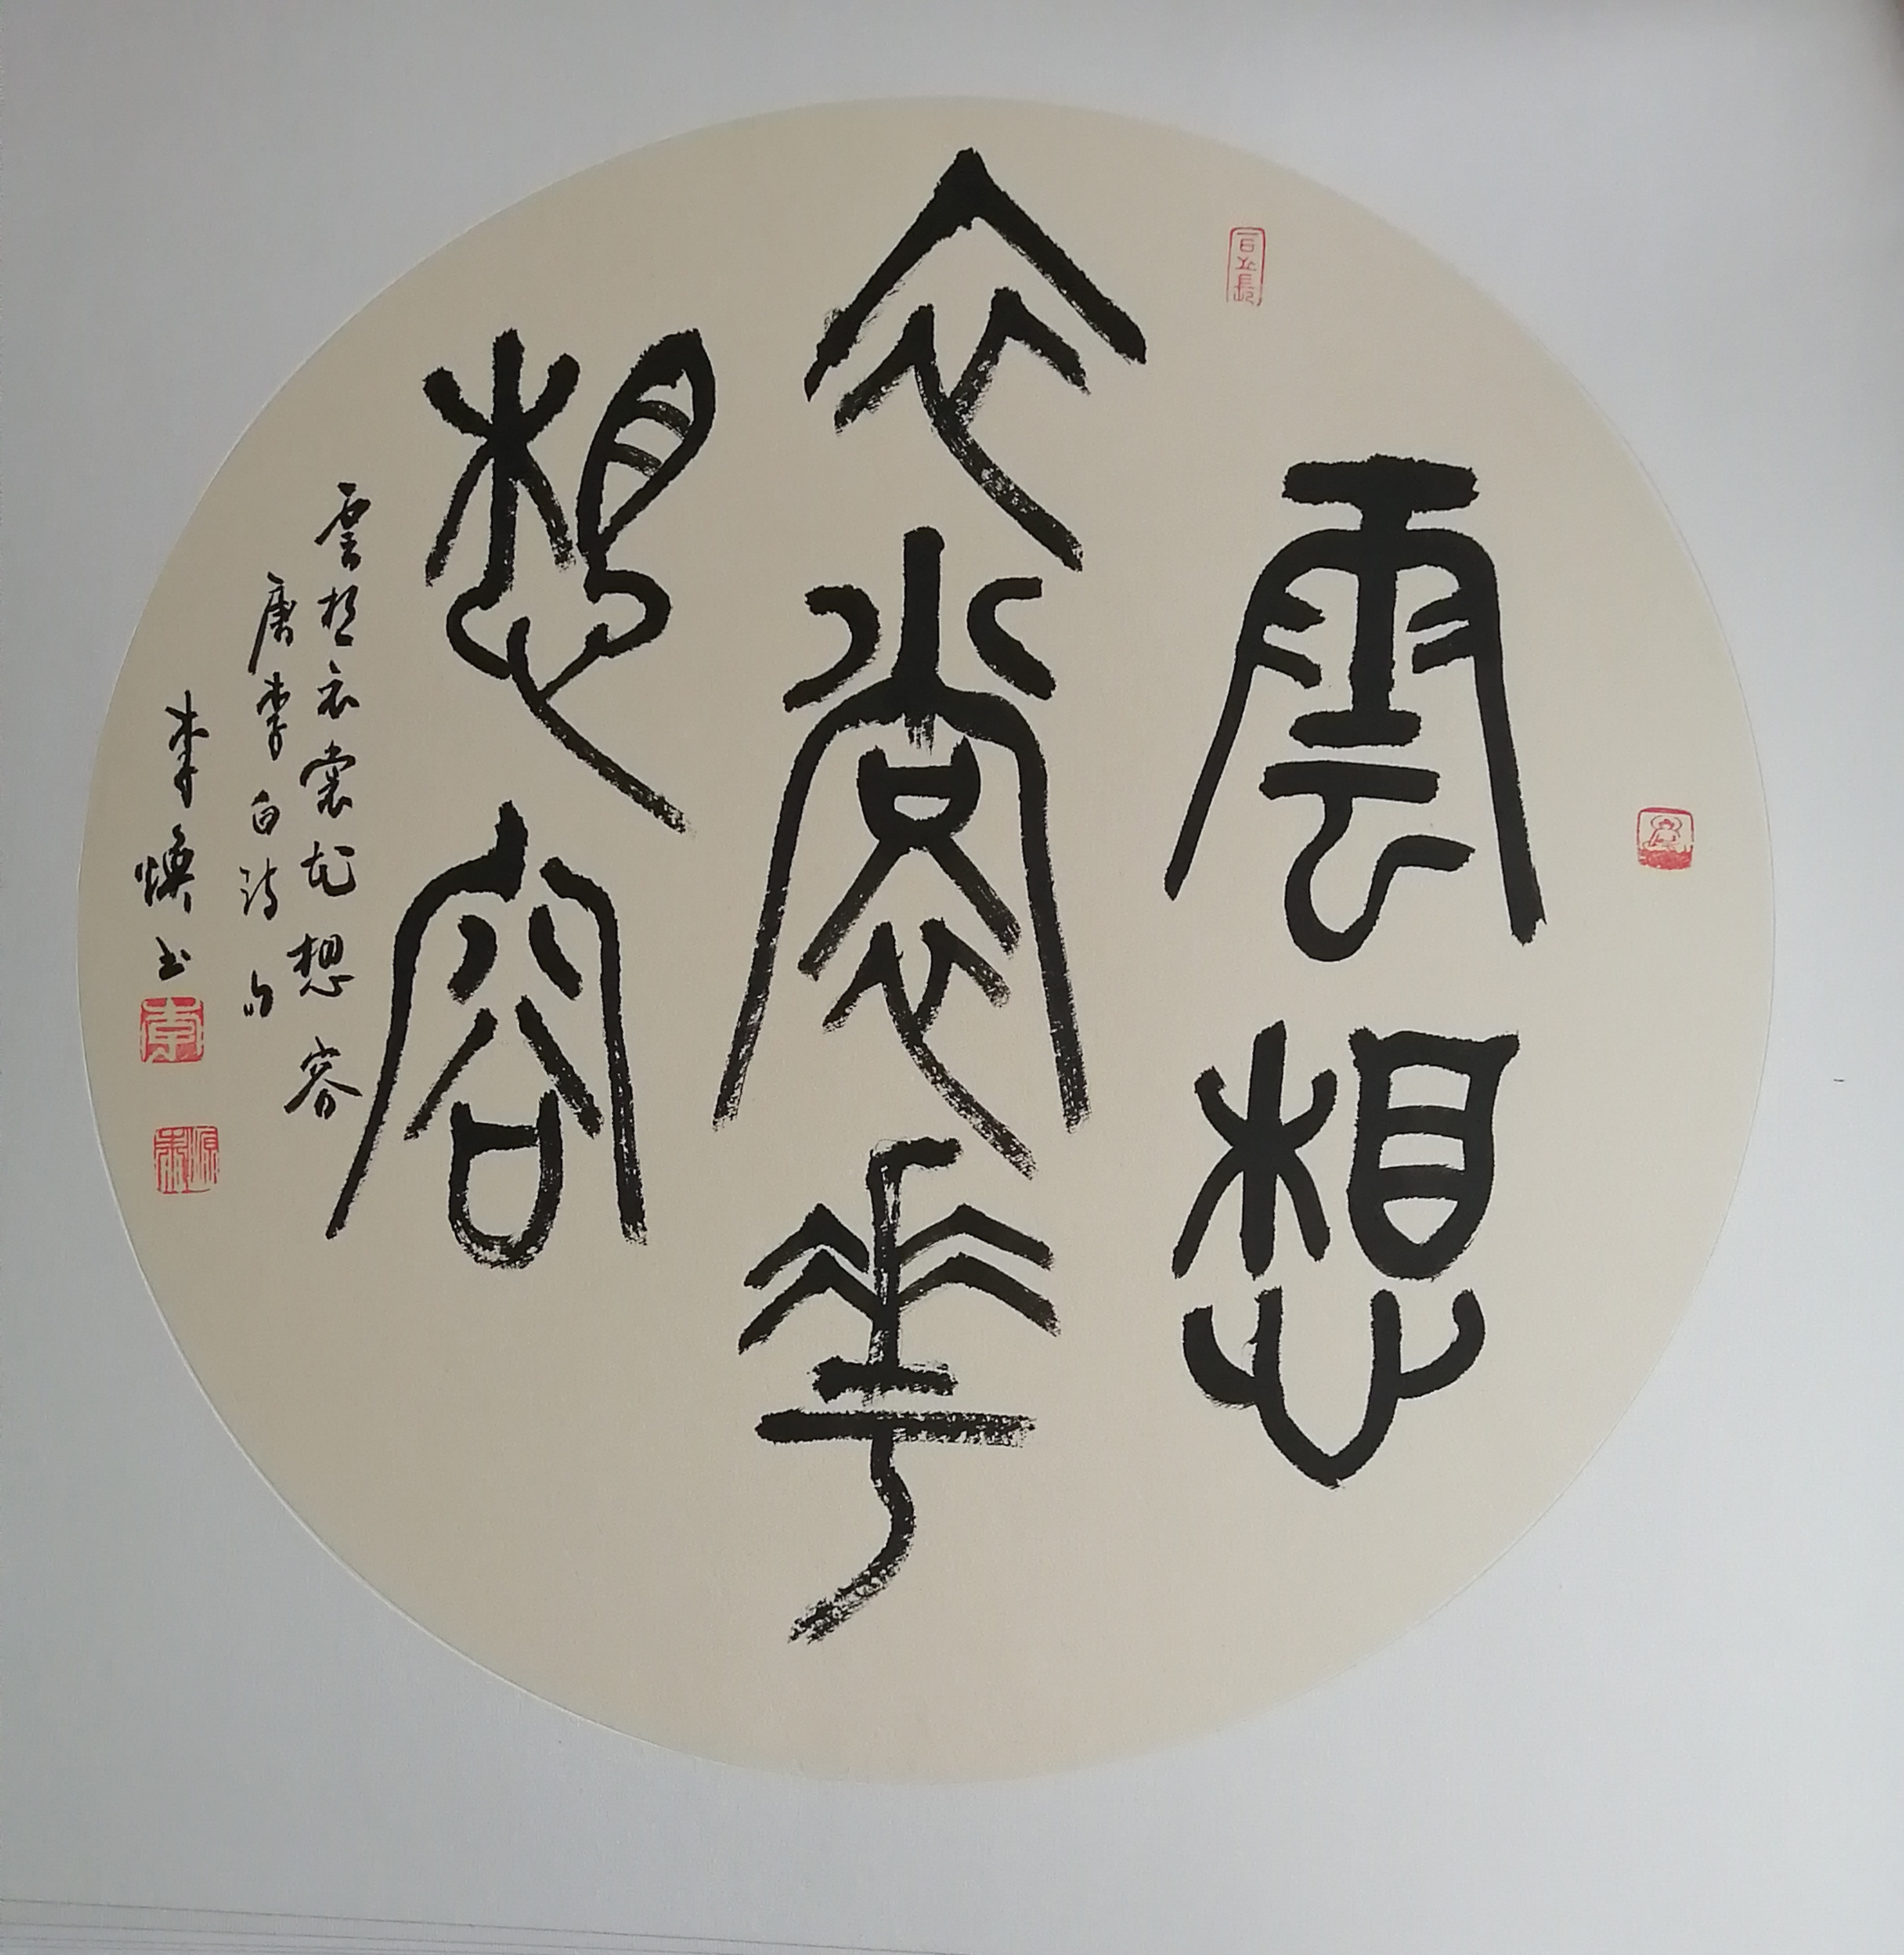 雲想
衣裳華
想容
雲想衣裳花想容
唐李白詩句
李煥書